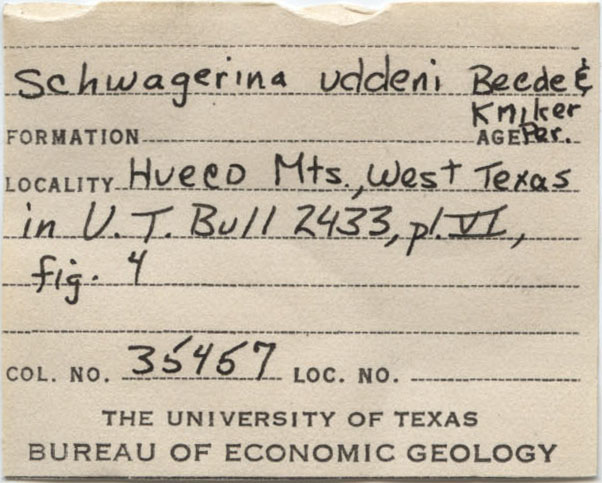 Schwagerina uddeni Beede &
Kniker
FORMATION AGE Per.
LOCALITY Hueco Mts., West Texas
in U. T. Bull 2433, pl. VI,
fig. 4
COL. NO. 35457 LOC. NO.
THE UNIVERSITY OF TEXAS
BUREAU OF ECONOMIC GEOLOGY